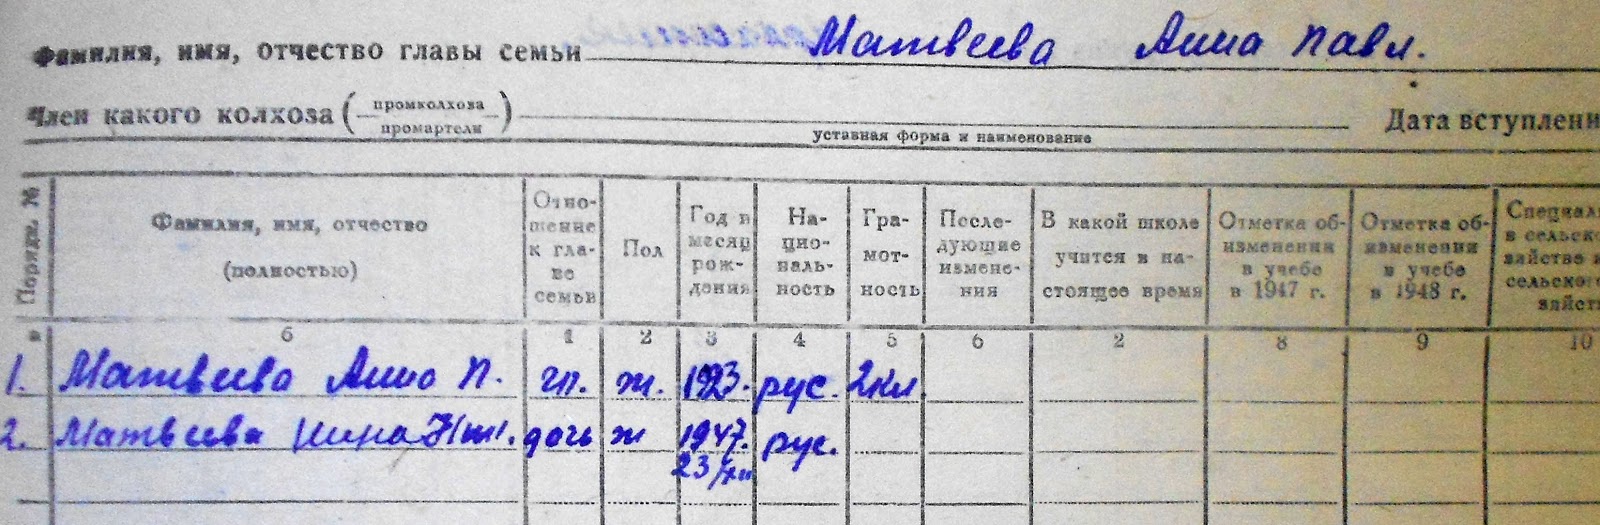 Фамилия, имя, отчество главы семьи Матвеева Анна Павл.
Член какого колхоза (промколхоза
промартели)
уставная форма и наименование
Дата вступлени
Порядк. №
Фамилия, имя, отчество
(полностью)
Отно-
шение
к гла-
ве
семьи
Пол
Год и
месяц
рож-
дения
На-
цио-
наль-
ность
Гра-
мот-
ность
После-
дующие
измене-
ния
В какой школе
учится в на-
стоящее время
Отметка об-
изменения
в учебе
в 1947 г.
Отметка об-
изменения
в учебе
в 1948 г.
Специал
в сельско
зяйстве и
сельског
зяйст
а б 1 2 3 4 5 6 2 8 9 10
1. Матвеева Анна П. гл. ж. 1923. рус. 2кл.
2. Матвеева Нина дочь ж 1947. рус.
23/XII